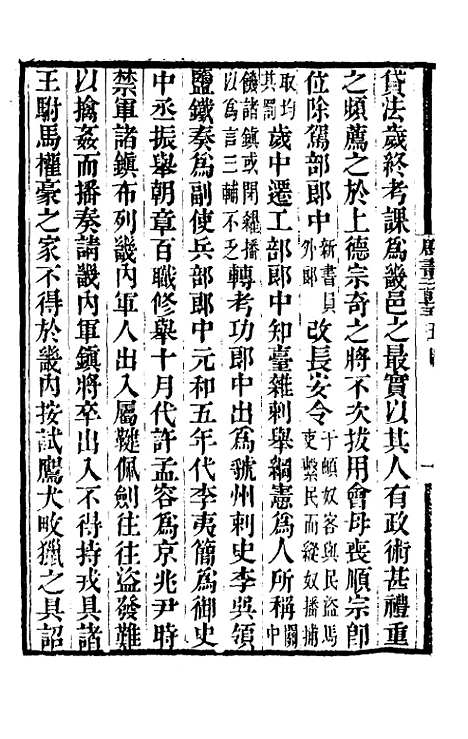 貸法歲終考課為畿邑之最實以其人有政術甚禮重
之頻薦之於上德宗奇之將不次拔用會母喪順宗卽
位除駕部郎中新書員外郎改長安令于頔奴客與民盜馬吏繫民而縱奴播捕
取均其罰歲中遷工部郎中知臺雜刺舉綱憲為人所稱關中
饑諸鎮或閉糴播以為言三輔不乏轉考功郎中出為虢州刺史李吳領
鹽鐵奏為副使兵部郎中元和五年代李夷簡為御史
中丞振舉朝章百職修舉十月代許孟容為京兆尹時
禁軍諸鎮布列畿內軍人出入屬鞬佩劍往往盜發難
以擒姦而播奏請畿內軍鎮將卒出入不得持戎具諸
王駙馬權豪之家不得於畿內按試鷹犬畋獵之具詔